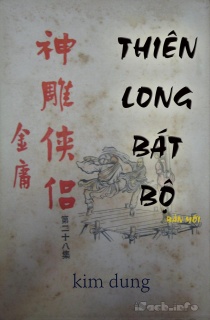 神雕俠侶
金庸
第二十八集
THIÊN
LONG
BÁT
BỘ
kim dung
iPach.info